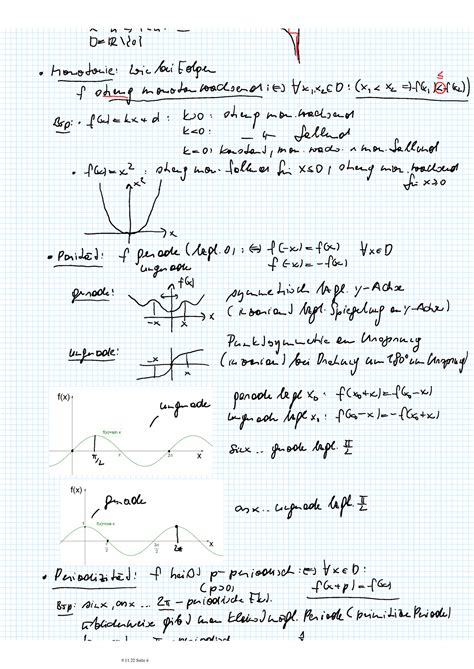 D=ℝ\{0}
• Monotonie: wie bei Folgen
≤
f streng monoton wachsend :⇔ ∀x₁,x₂∈D: (x₁ < x₂ ⇒ f(x₁) < f(x₂))
Bsp: • f(x)=kx+d : k>0: streng mon. wachsend
k<0: — " — fallend
k=0: konstant, mon. wachs. ∧ mon. fallend
• f(x)=x² : streng mon. fallend für x≤0, streng mon. wachsend
für x≥0
x²
x
• Parität: f gerade (bzgl. 0) :⇔ f(-x)=f(x) ∀x∈D
ungerade f(-x)=-f(x)
f(x)
gerade:
-x x x
symmetrisch bzgl. y-Achse
(invariant bzgl. Spiegelung an y-Achse)
ungerade:
-x x
Punktsymmetrie am Ursprung
(invariant bei Drehung um 180° um Ursprung)
f(x)
ungerade
f(x)=sin x
π/2 π 2π x
gerade bzgl x₀: f(x₀+x)=f(x₀-x)
ungerade bzgl x₀: f(x₀-x)=-f(x₀+x)
sin x .. gerade bzgl. π/2
f(x)
gerade
2π x
cos x .. ungerade bzgl. π/2
• Periodizität: f heißt p-periodisch :⇔ ∀x∈D:
(p>0) f(x+p)=f(x)
Bsp: sin x, cos x ... 2π-periodische Fkt.
üblicherweise gibt man kleinstmögl. Periode (primitive Periode)
9.11.22 Seite 4